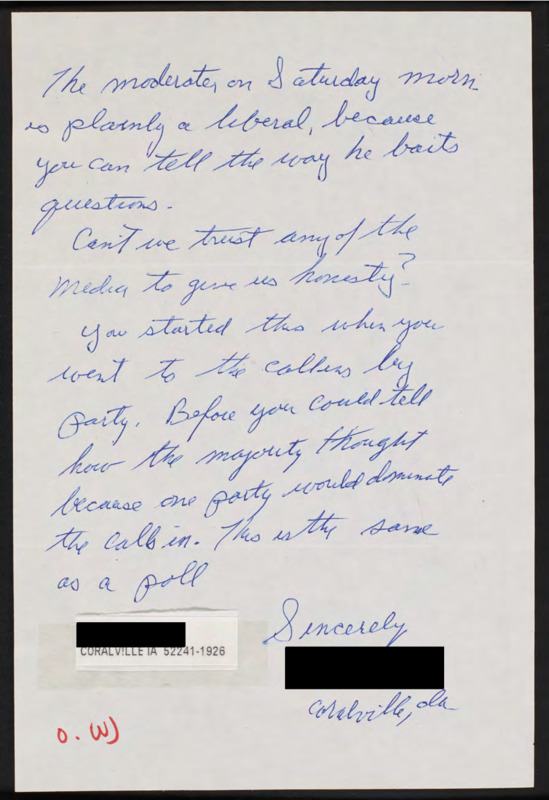 The moderater on Saturday morn.
is plainly a liberal, because
you can tell the way he baits
questions.
Can't we trust any of the
media to give us honesty?
You started this when you
went to the callins by
party. Before you could tell
how the majority thought
because one party would dominate
the call in. This is the same
as a poll
Sincerely
CORALVILLE IA 52241-1926
Coralville, Ia
O. W)